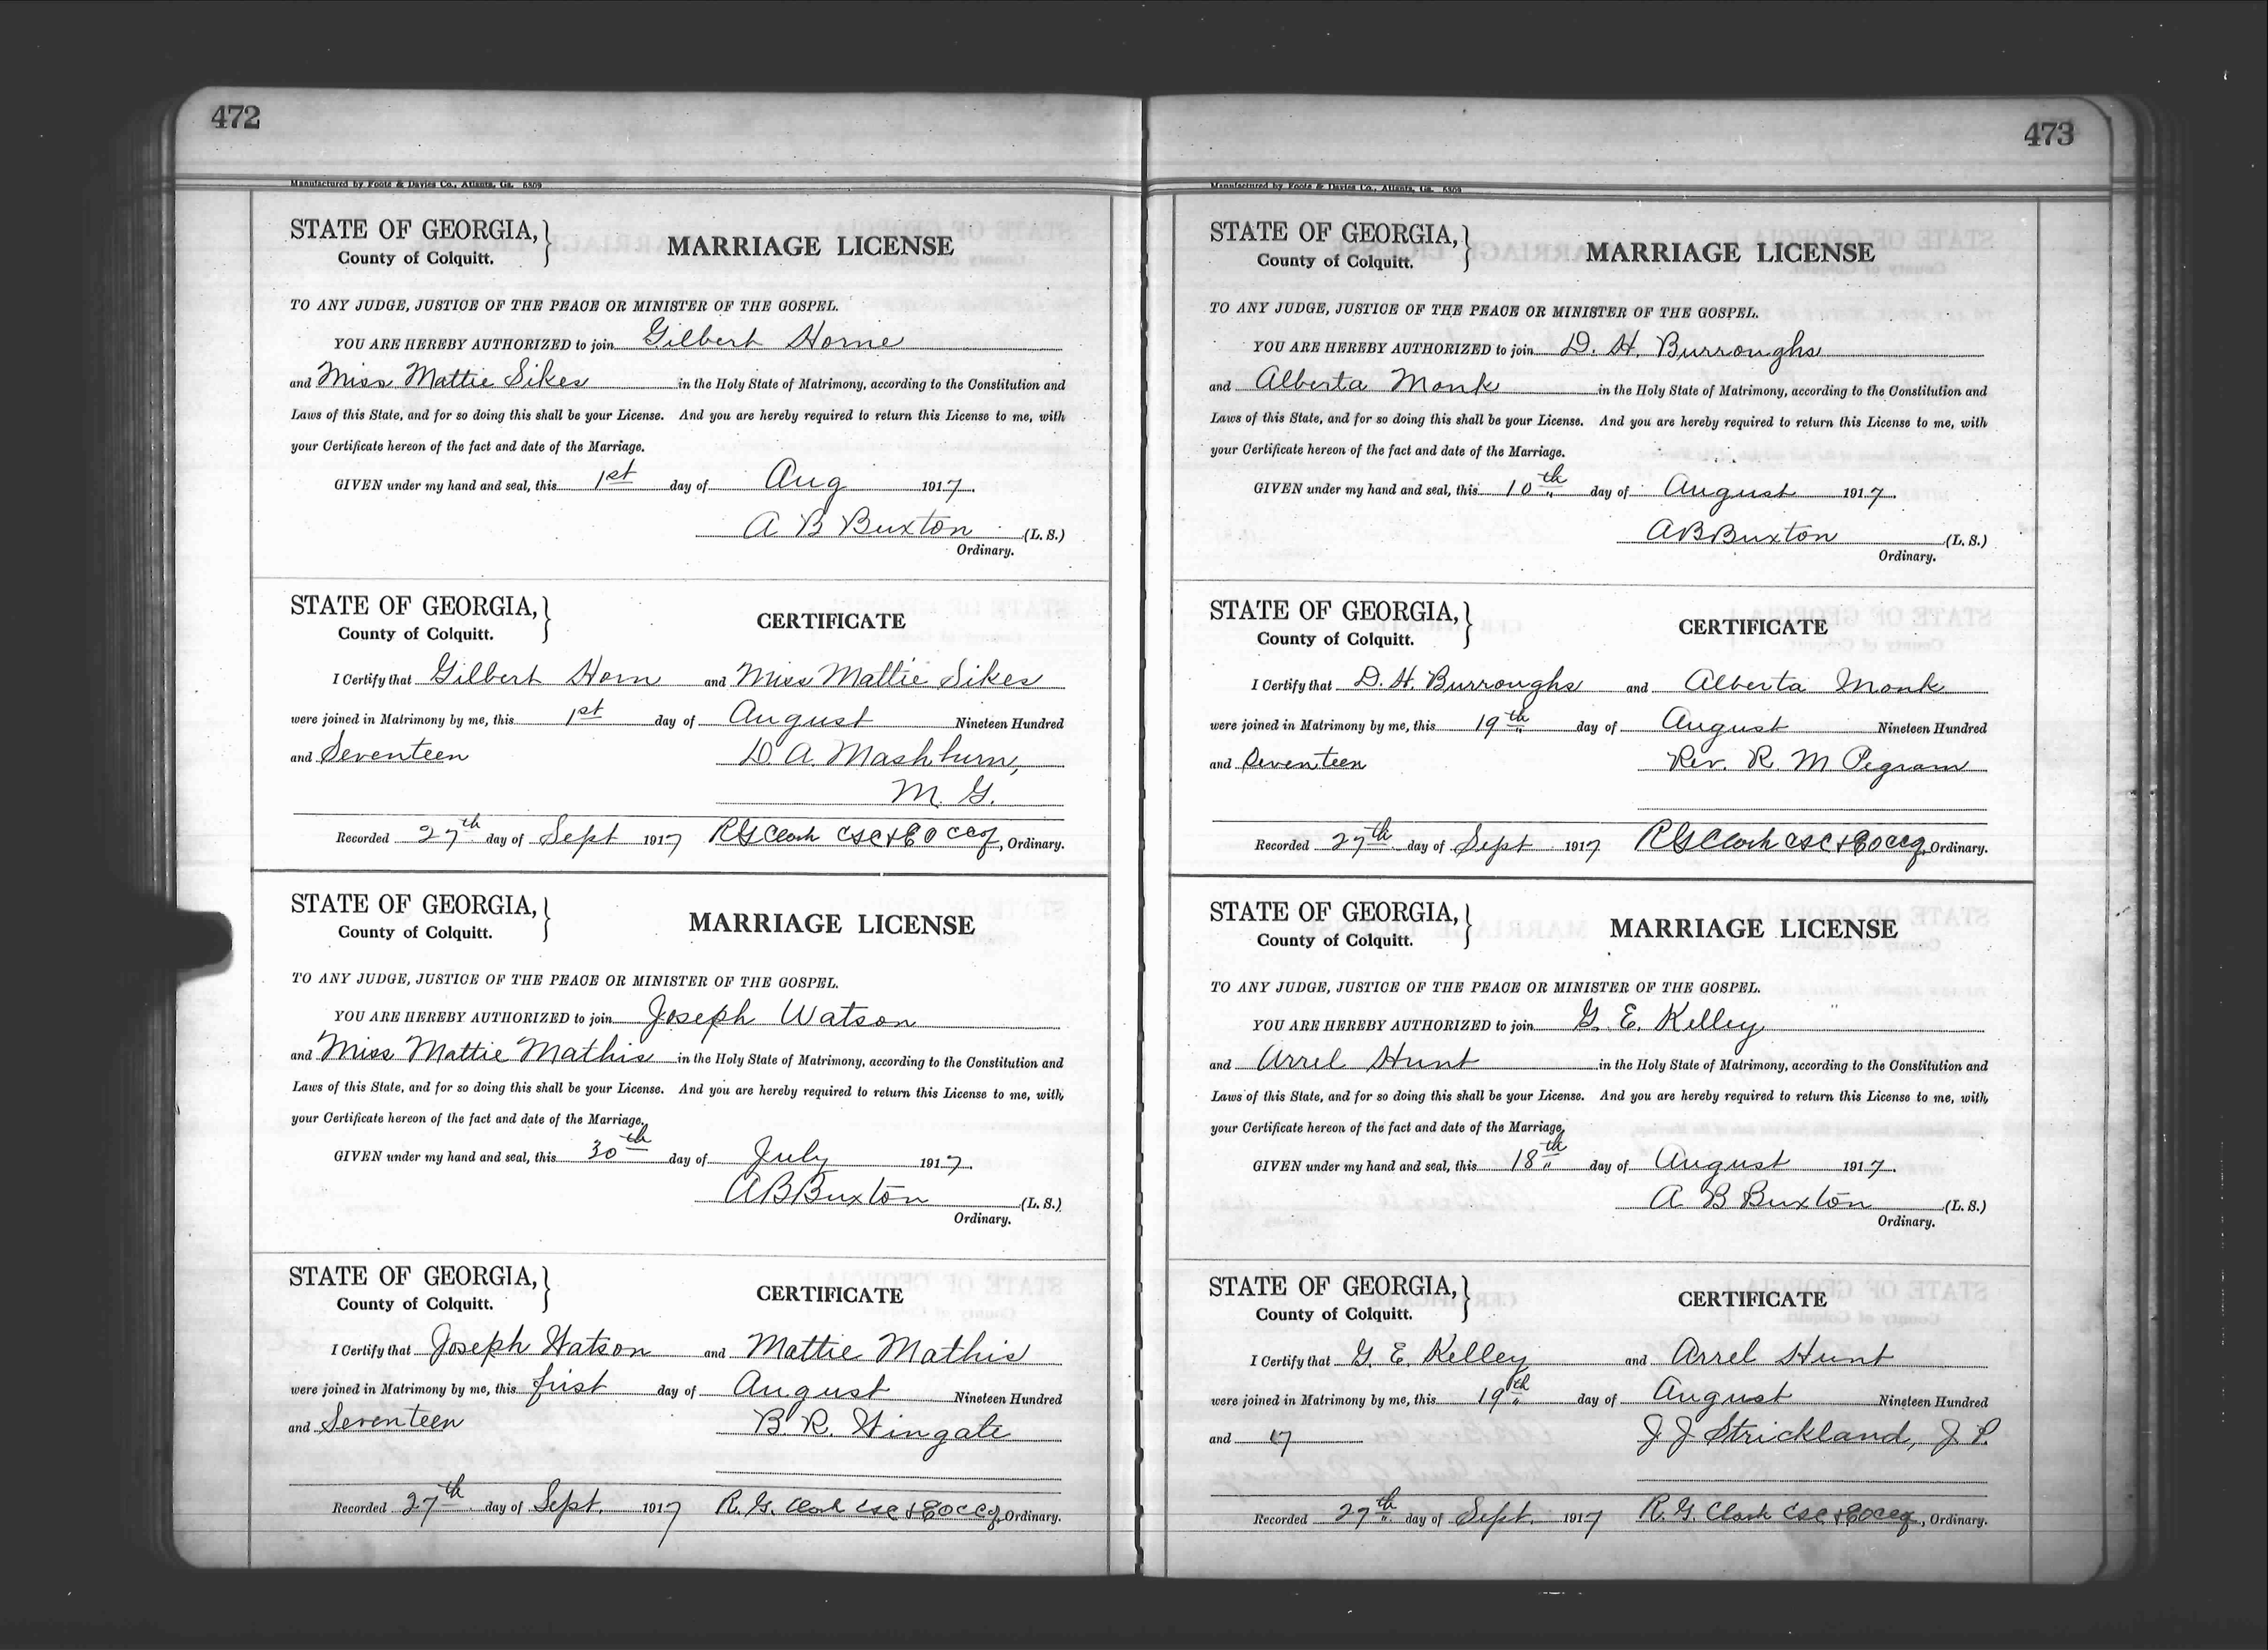 472
Manufactured by Foote & Davies Co., Atlanta, Ga. 6309
STATE OF GEORGIA,
County of Colquitt.
MARRIAGE LICENSE
TO ANY JUDGE, JUSTICE OF THE PEACE OR MINISTER OF THE GOSPEL.
YOU ARE HEREBY AUTHORIZED to join Gilbert Horne
and Miss Mattie Sikes in the Holy State of Matrimony, according to the Constitution and
Laws of this State, and for so doing this shall be your License. And you are hereby required to return this License to me, with
your Certificate hereon of the fact and date of the Marriage.
GIVEN under my hand and seal, this 1st day of Aug 1917.
A B Buxton (L. S.)
Ordinary.
STATE OF GEORGIA,
County of Colquitt.
CERTIFICATE
I Certify that Gilbert Horn and Miss Mattie Sikes
were joined in Matrimony by me, this 1st day of August Nineteen Hundred
and Seventeen D. A. Mashburn,
M. G.
Recorded 27th day of Sept 1917 R G Clark CSC & EO CCG, Ordinary.
STATE OF GEORGIA,
County of Colquitt.
MARRIAGE LICENSE
TO ANY JUDGE, JUSTICE OF THE PEACE OR MINISTER OF THE GOSPEL.
YOU ARE HEREBY AUTHORIZED to join Joseph Watson
and Miss Mattie Mathis in the Holy State of Matrimony, according to the Constitution and
Laws of this State, and for so doing this shall be your License. And you are hereby required to return this License to me, with
your Certificate hereon of the fact and date of the Marriage.
GIVEN under my hand and seal, this 30th day of July 1917.
A B Buxton (L. S.)
Ordinary.
STATE OF GEORGIA,
County of Colquitt.
CERTIFICATE
I Certify that Joseph Watson and Mattie Mathis
were joined in Matrimony by me, this first day of August Nineteen Hundred
and Seventeen B. R. Wingate
Recorded 27th day of Sept. 1917 R. G. Clark CSC & EO CCG, Ordinary.
473
Manufactured by Foote & Davies Co., Atlanta, Ga. 6309
STATE OF GEORGIA,
County of Colquitt.
MARRIAGE LICENSE
TO ANY JUDGE, JUSTICE OF THE PEACE OR MINISTER OF THE GOSPEL.
YOU ARE HEREBY AUTHORIZED to join D. H. Burroughs
and Alberta Monk in the Holy State of Matrimony, according to the Constitution and
Laws of this State, and for so doing this shall be your License. And you are hereby required to return this License to me, with
your Certificate hereon of the fact and date of the Marriage.
GIVEN under my hand and seal, this 10th day of August 1917.
A B Buxton (L. S.)
Ordinary.
STATE OF GEORGIA,
County of Colquitt.
CERTIFICATE
I Certify that D. H. Burroughs and Alberta Monk
were joined in Matrimony by me, this 19th day of August Nineteen Hundred
and Seventeen Rev. R. M Pegram
Recorded 27th day of Sept 1917 R G Clark CSC & EO CCG, Ordinary.
STATE OF GEORGIA,
County of Colquitt.
MARRIAGE LICENSE
TO ANY JUDGE, JUSTICE OF THE PEACE OR MINISTER OF THE GOSPEL.
YOU ARE HEREBY AUTHORIZED to join G. E. Kelley
and Arrel Hunt in the Holy State of Matrimony, according to the Constitution and
Laws of this State, and for so doing this shall be your License. And you are hereby required to return this License to me, with
your Certificate hereon of the fact and date of the Marriage.
GIVEN under my hand and seal, this 18th day of August 1917.
A B Buxton (L. S.)
Ordinary.
STATE OF GEORGIA,
County of Colquitt.
CERTIFICATE
I Certify that G. E. Kelley and Arrel Hunt
were joined in Matrimony by me, this 19th day of August Nineteen Hundred
and 17 J J Strickland, J. P.
Recorded 27th day of Sept. 1917 R. G. Clark CSC & EO CCG, Ordinary.